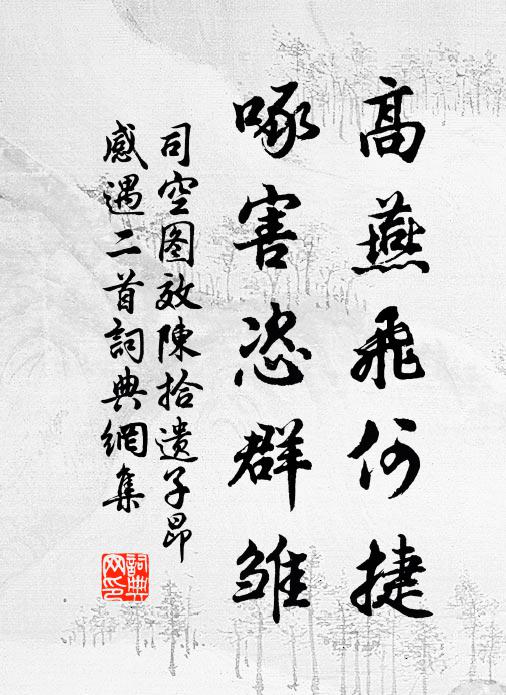 高燕飛何捷
啄害恣群雏
司空图效陳拾遗子昂
感遇二首詞典網集
詞典網印